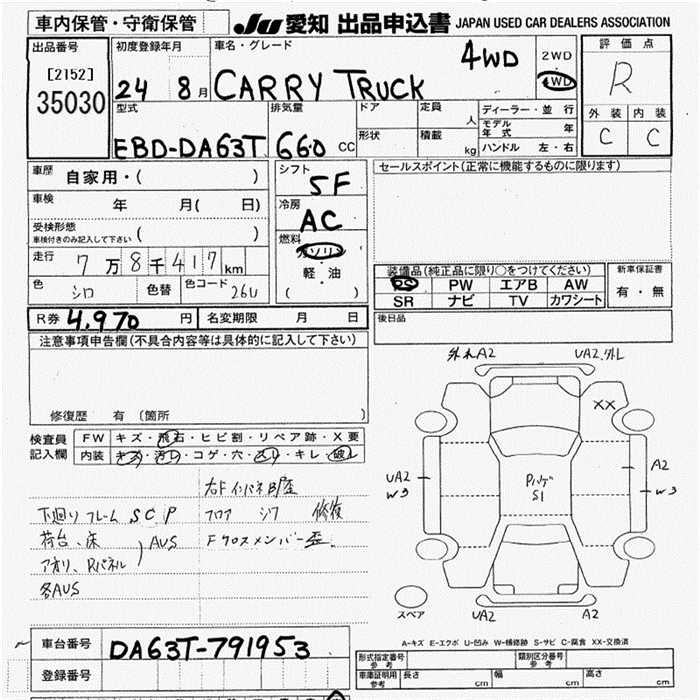 車内保管・守衛保管
JU 愛知 出品申込書 JAPAN USED CAR DEALERS ASSOCIATION
出品番号
[2152]
35030
初度登録年月
24 8月
車名・グレード
CARRY TRUCK 4WD
2WD
4WD
評価点
R
外装 内装
C C
型式
EBD-DA63T
排気量
660 CC
ドア
形状
定員 人
積載 kg
ディーラー・並行
モデル年式 年
ハンドル 左・右
車歴 自家用・( )
車検 年 月( 日)
受検形態
車検付きのみ記入して下さい ( )
走行 7万8千417km
色 シロ 色替 色コード 26U
シフト
5F
冷房
AC
燃料
ガソリン
・
軽・油
( )
セールスポイント(正常に機能するものに限ります)
装備品(純正品に限り○をつけてください)
PS PW エアB AW
SR ナビ TV カワシート
新車保証書
有・無
R券 4,970 円 名変期限 月 日
後日品
注意事項申告欄(不具合内容等は具体的に記入して下さい)
修復歴 有 (箇所 )
検査員記入欄
FW キズ・飛石・ヒビ割・リペア跡・X要
内装 キズ・汚レ・コゲ・穴・スレ・キレ・破レ
下廻り フレーム SCP
荷台、床
アオリ、Rパネル ) AUS
各AUS
右Fインパネ
フロア シワ 修復
Fクロスメンバー歪
外れA2 UA2.外レ
XX
UA2
W3
A2
W3
S1
スペア
UA2 A2
A-キズ E-エクボ U-凹み W-補修跡 S-サビ C-腐食 XX-交換済
車台番号 DA63T-791953
登録番号
形式指定番号 参考
類別区分番号 参考
車庫証明用 参考
長さ cm 幅 cm 高さ cm